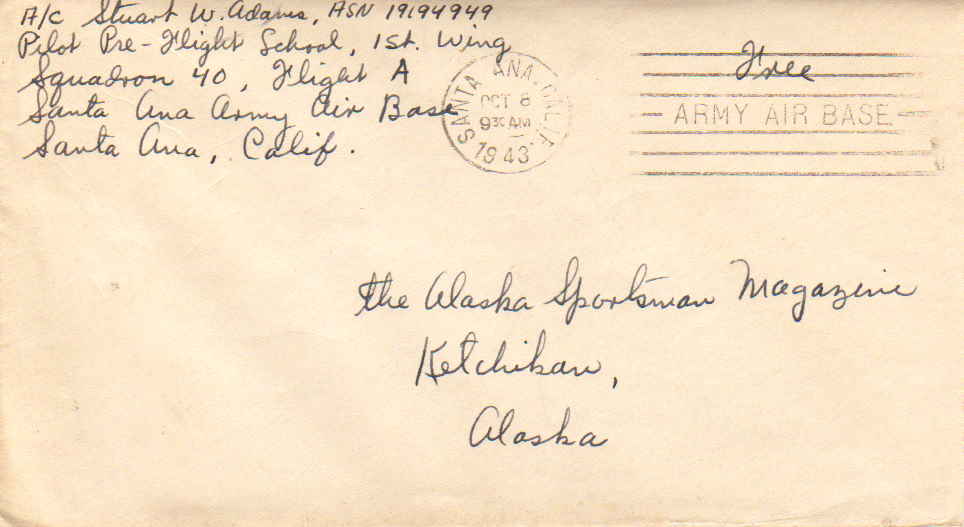 A/C Stuart W. Adams, ASN 19194949
Pilot Pre-Flight School, 1st. Wing
Squadron 40, Flight A
Santa Ana Army Air Base
Santa Ana, Calif.
SANTA ANA, CALIF.
OCT 8
930 AM
1943
Free
ARMY AIR BASE
the Alaska Sportsman Magazine
Ketchikan,
Alaska